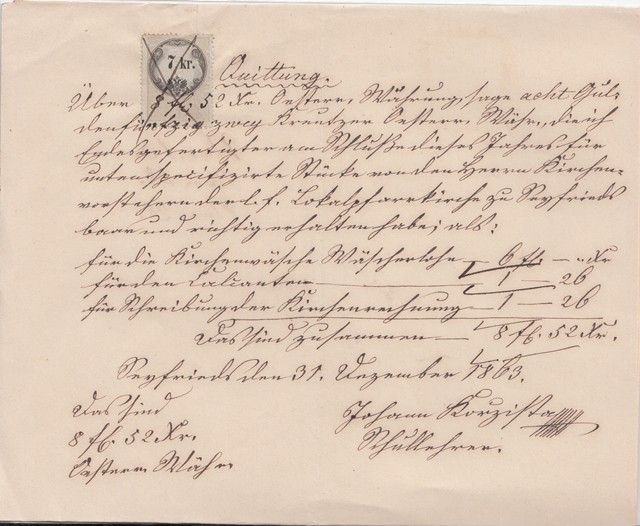 7 kr.
Quittung.
Über 8 fl. 52 Xr. Oesterr. Währung, sage acht Gul-
den fünfzig zwey Kreutzer Oesterr. Währ., die ich
Endesgefertigter am Schluße dieses Jahres für
unten specifizirte Stücke von den Herrn Kirchen-
vorstehern der l. f. Lokalpfarrkirche zu Seyfrieds
baar und richtig erhalten habe; als:
für die Kirchenwäsche Wäscherlohn 6 fl. — „ Xr
für den Calcanten — 1 — 26
für Schreibung der Kirchenrechnung — 1 — 26
Das sind zusammen — 8 fl. 52 Xr.
Seyfrieds den 31. Dezember 1863.
Das sind
8 fl. 52 Xr.
Oesterr. Währ.
Johann
Schullehrer.